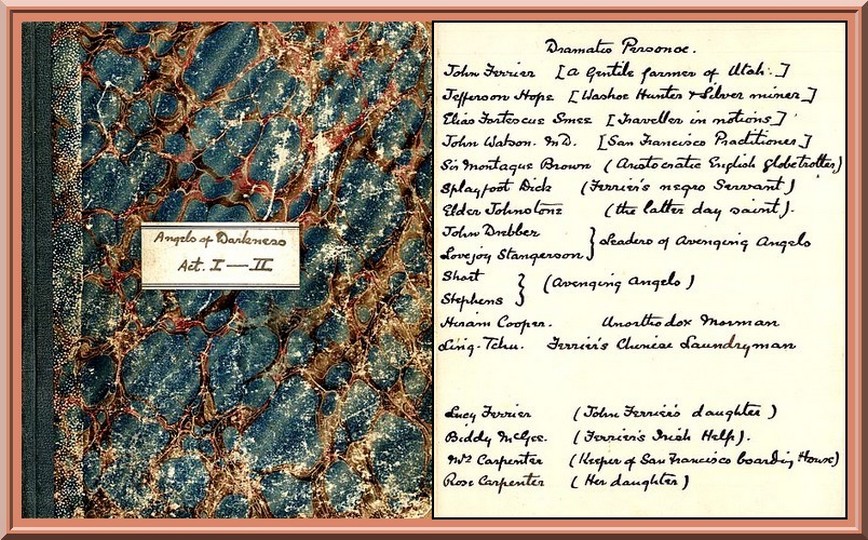 Angels of Darkness
Act. I — II
Dramatis Personae.
John Ferrier [A Gentile farmer of Utah.]
Jefferson Hope [Washoe Hunter & Silver miner]
Elias Fortescue Smee [Traveller in notions]
John Watson. M.D. [San Francisco Practitioner]
Sir Montague Brown (Aristocratic English globetrotter)
Splayfoot Dick (Ferrier's negro Servant)
Elder Johnstone (the latter day saint).
John Drebber
Lovejoy Stangerson } Leaders of Avenging Angels
Short
Stephens } (Avenging Angels)
Hiram Cooper. Unorthodox Morman
Ling-Tchu. Ferrier's Chinese Laundryman
Lucy Ferrier (John Ferrier's daughter)
Biddy McGee. (Ferrier's Irish Help).
Mrs Carpenter (Keeper of San Francisco boarding House)
Rose Carpenter (Her daughter)